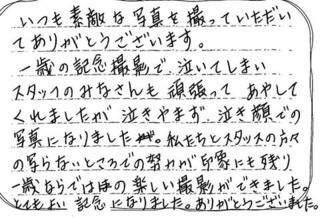 いつも素敵な写真を撮っていただい
てありがとうございます。
一歳の記念撮影で、泣いてしまい
スタッフのみなさんも頑張って あやして
くれましたが 泣きやまず 泣き顔での
写真になりました。私たちとスタッスの方々
の写らないところでの努力が印象にも残り
一歳ならではほの楽しい撮影ができました。
とてもよい 記念になりました。ありがとうございました。